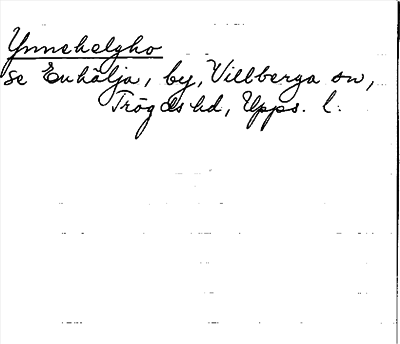 Ynnehelgho
se Enhälja, by, Villberga sn,
Trögds hd, Upps. l.